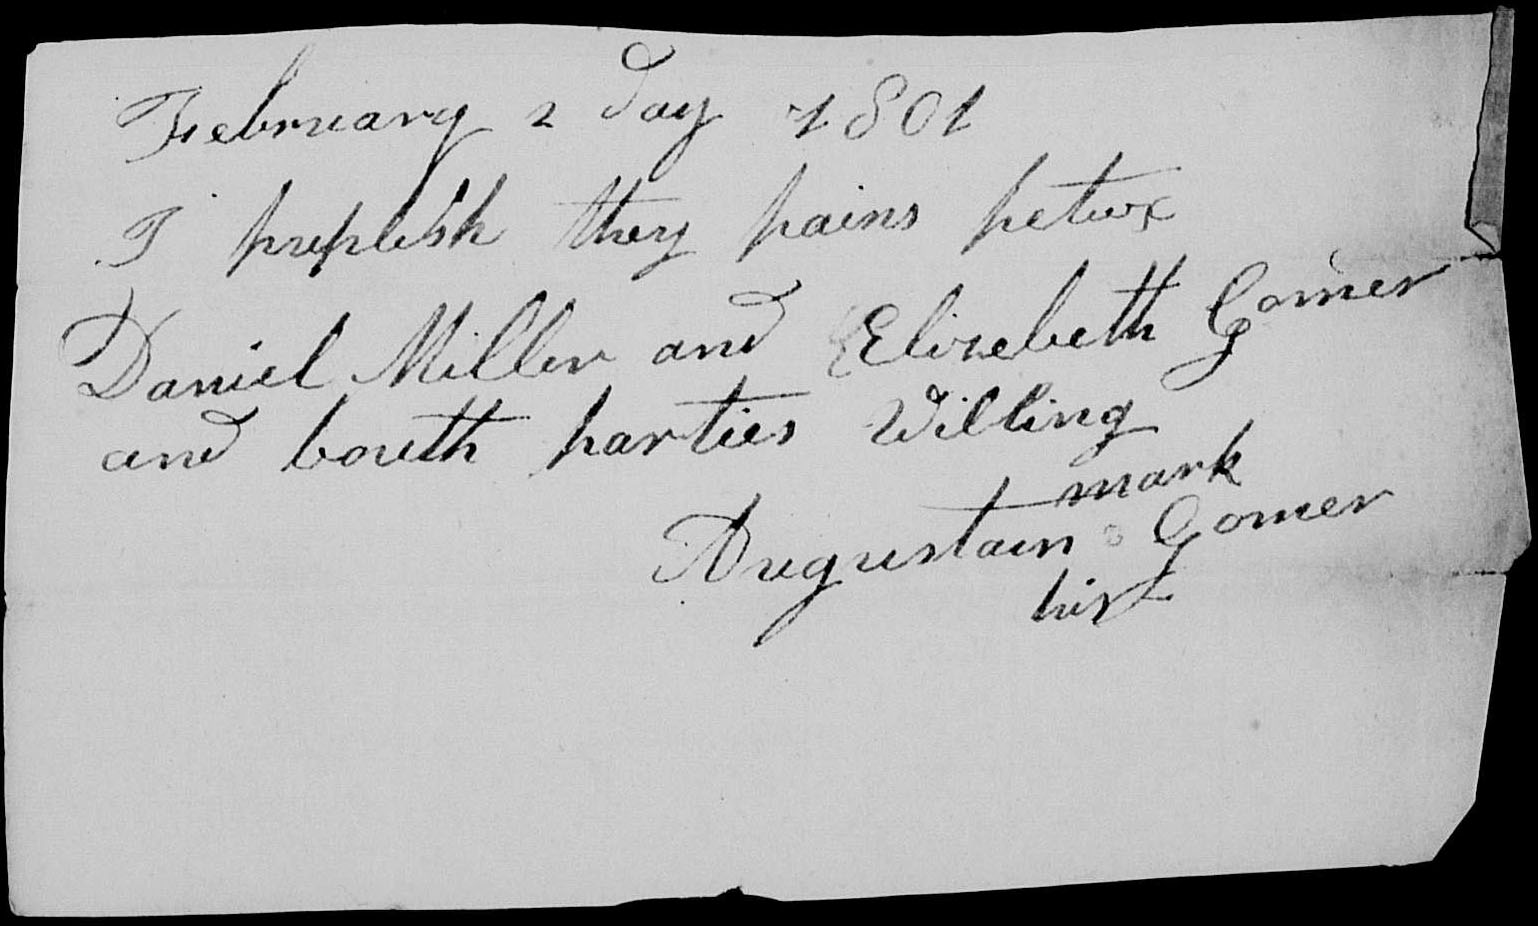 February 2 day 1801
I puplish they pains petwx
Daniel Miller and Elizebeth Gomer
and bouth parties Willing
mark
Augustain Gomer
his